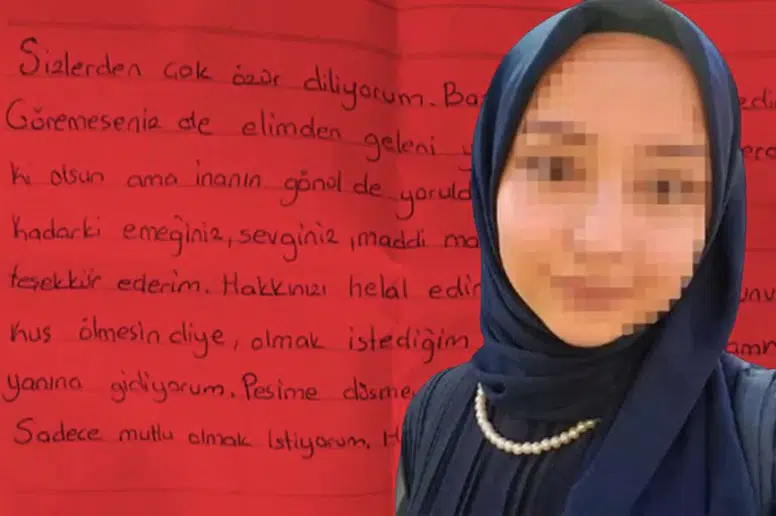 Sizlerden çok özür diliyorum. Ba edi
Göremeseniz de elimden geleni y erc
ki olsun ama inanın gönül de yoruld
kadarki emeğiniz, sevginiz, maddi ma
teşekkür ederim. Hakkınızı helal edin unu
kus ölmesin diye, olmak istediğim amn
yanına gidiyorum. Peşime düşme
Sadece mutlu olmak istiyorum. H